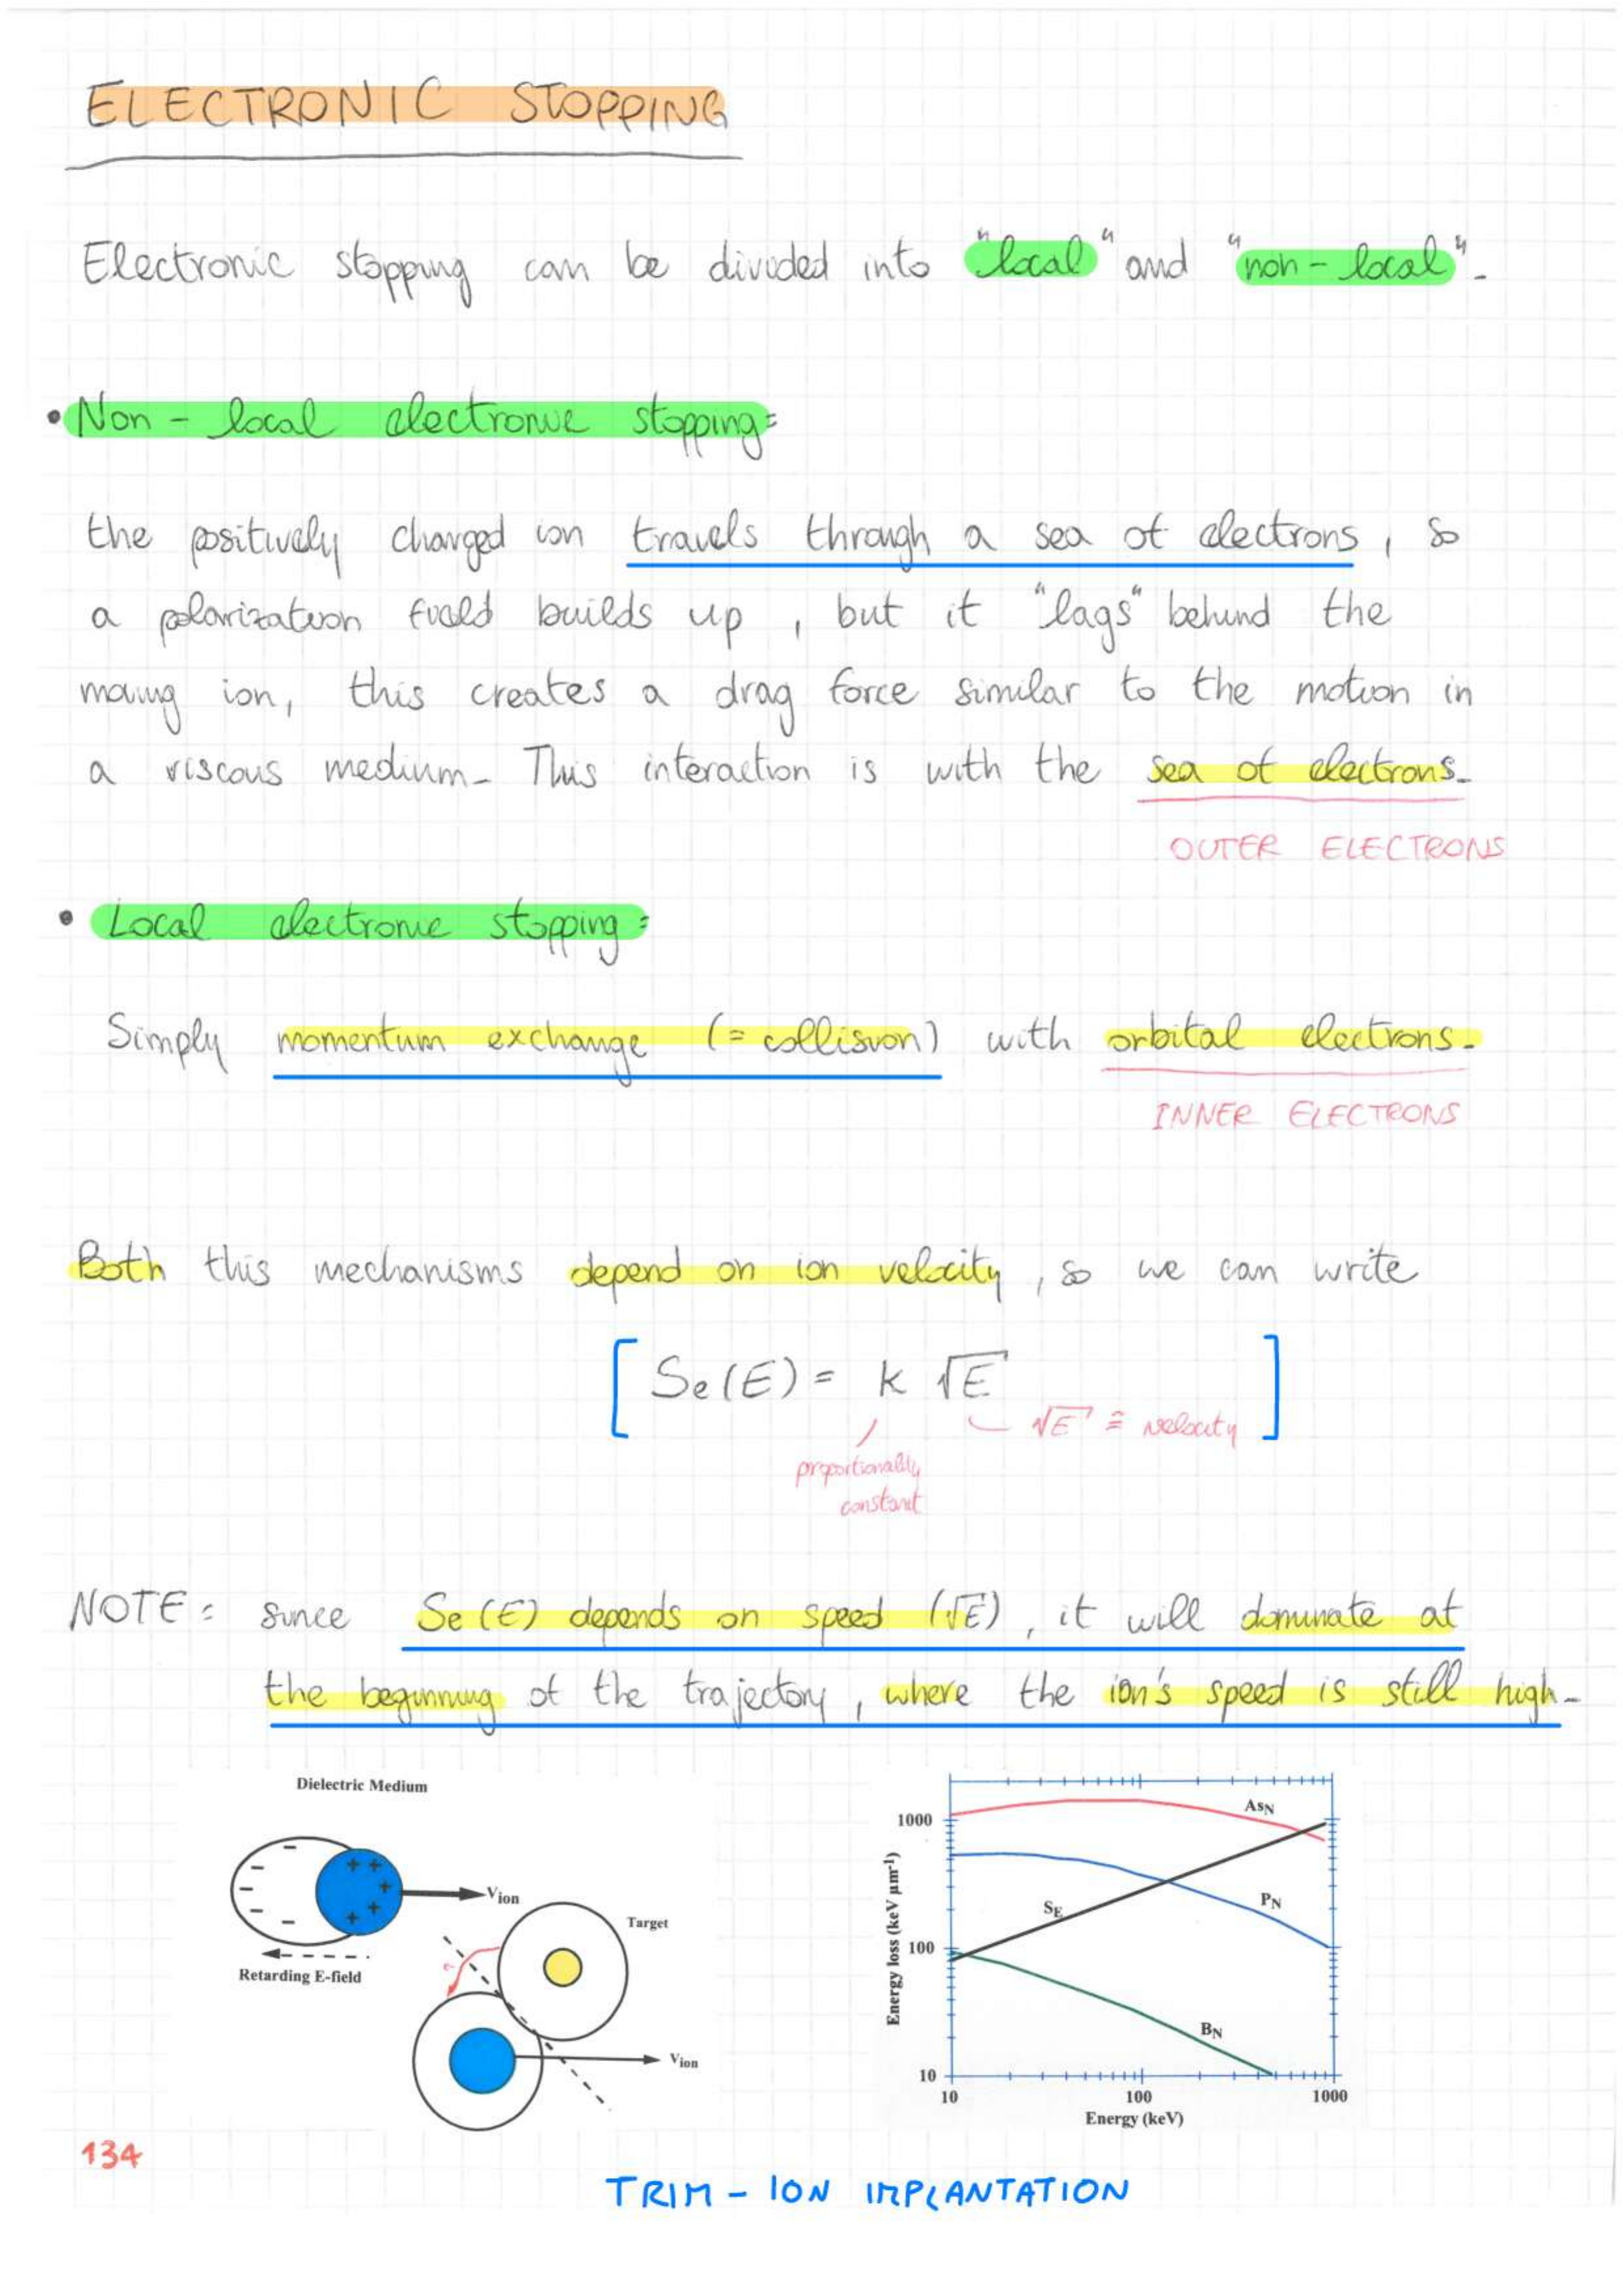 ELECTRONIC STOPPING
Electronic stopping can be divided into "local" and "non-local".
• Non-local electronic stopping:
the positively charged ion travels through a sea of electrons, so
a polarization field builds up, but it "lags" behind the
moving ion, this creates a drag force similar to the motion in
a viscous medium. This interaction is with the sea of electrons.
OUTER ELECTRONS
• Local electronic stopping:
Simply momentum exchange (= collision) with orbital electrons.
INNER ELECTRONS
Both this mechanisms depend on ion velocity, so we can write
[Se(E) = k √E]
√E ≙ velocity
proportionality
constant
NOTE: since Se(E) depends on speed (√E), it will dominate at
the beginning of the trajectory, where the ion's speed is still high.
Dielectric Medium
- - - - - -
+ + + + +
Vion
Retarding E-field
Target
e-
Vion
Energy loss (keV μm-1)
1000
100
10
AsN
PN
SE
BN
10 100 1000
Energy (keV)
134
TRIM - ION IMPLANTATION